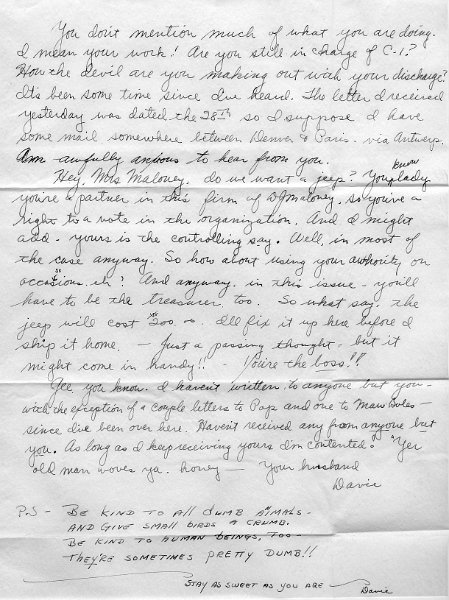 You don't mention much of what you are doing.
I mean your work! Are you still in charge of C-1?
How the devil are you making out with your discharge?
It's been some time since I've heard. The letter I received
yesterday was dated the 28th so I suppose I have
some mail somewhere between Denver & Paris - via Antwerp.
Am awfully anxious to hear from you.
Hey, Mrs Maloney, do we want a jeep? You know lady
you're a partner in this firm of DJMaloney, so you've a
right to a vote in the organization. And I might
add - yours is the controlling say. Well, in most of
the case anyway. So how about using your authority on
occasions, eh? And anyway, in this issue - you'll
have to be the treasurer, too. So what say, the
jeep will cost I'll fix it up here before I
ship it home. — Just a passing thought, but it
might come in handy!! - You're the boss!!
Gee, you know, I haven't written to anyone but you -
with the exception of a couple letters to Paps and one to Maw
since I've been over here. Haven't received any from anyone but
you. As long as I keep receiving yours I'm contented. "Yer
old man woves ya, honey — Your husband
Davie
P.S - BE KIND TO All DUMB AIMALS-
AND GIVE SMALL BIRDS A CRUMB.
BE KIND TO HUMAN BEINGS, TOO-
THEY'RE SOMETINES PRETTY DUMB!!
STAY AS SWEET AS YOU ARE — Davie